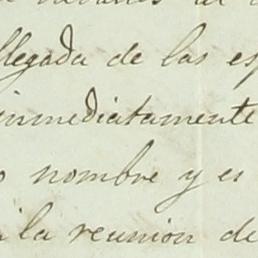 llegada de las es
inmediatamente
nombre y es
la reunion de